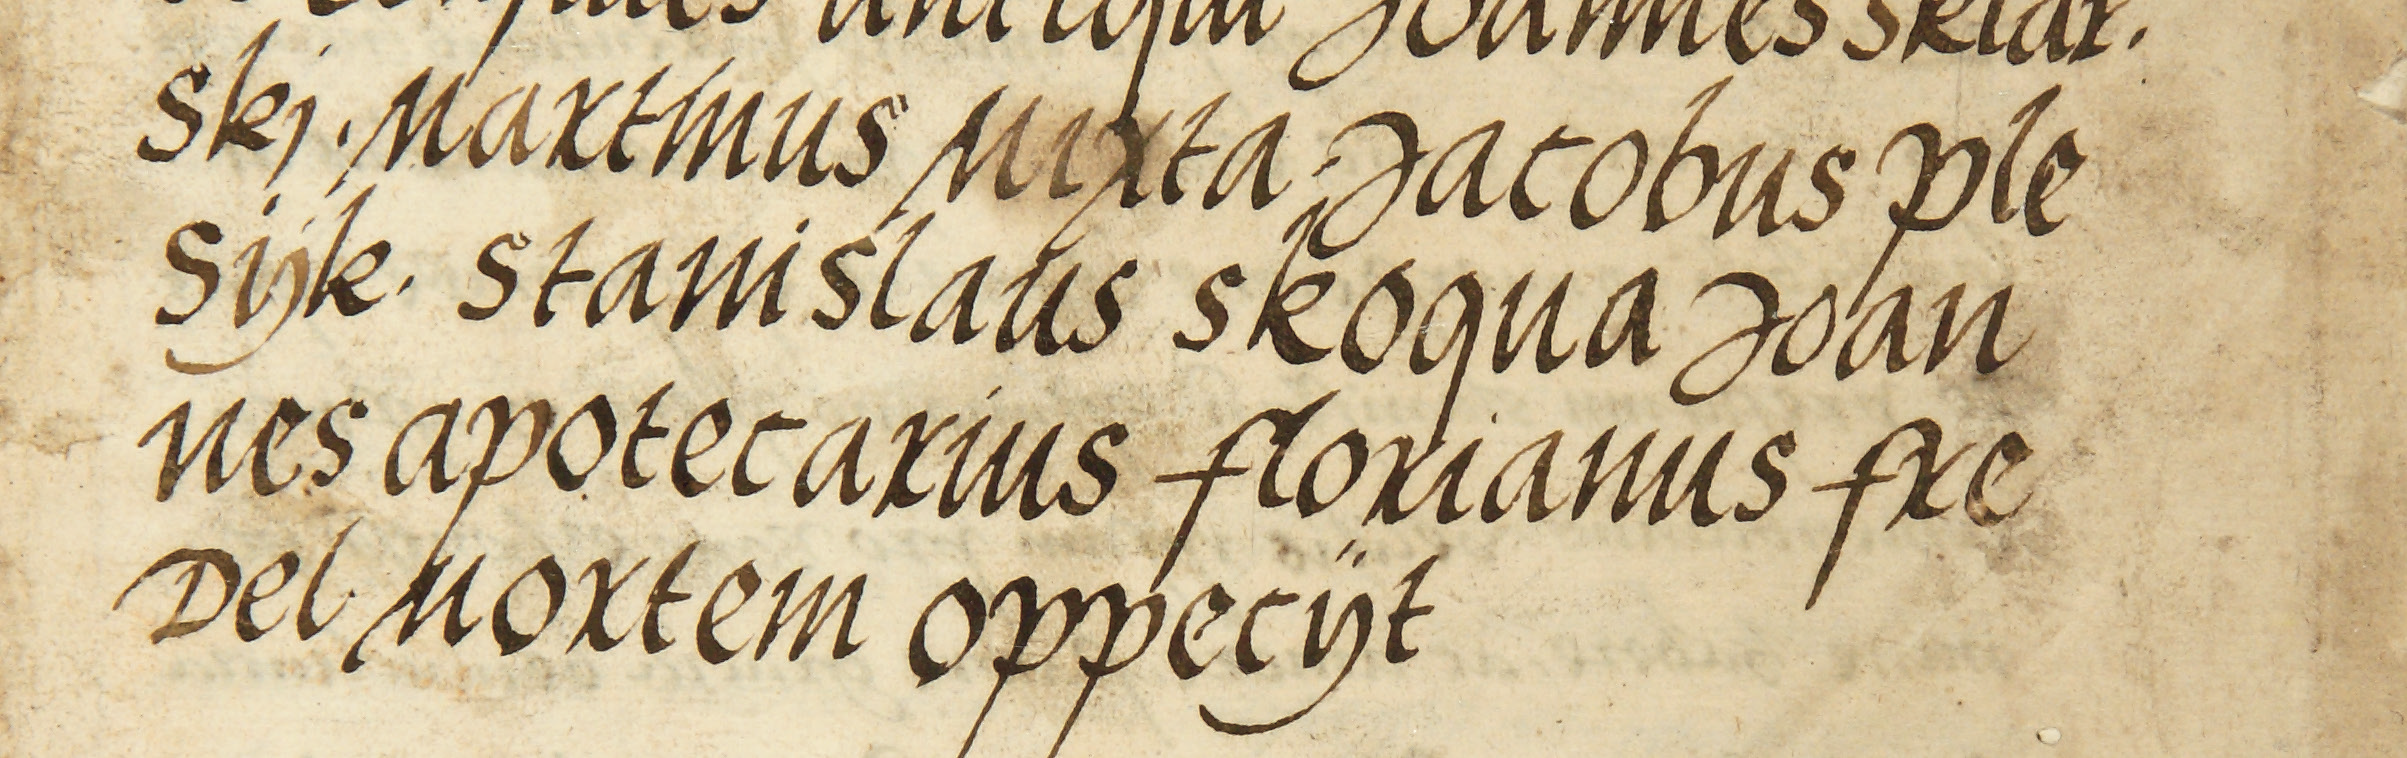 antiqui Joannes Sklar.
skj. Martinus Mixta. Jacobus Ple
sijk. Stanislaus Skoqua Joan
nes apotecarius florianus fre
Del Mortem oppecijt